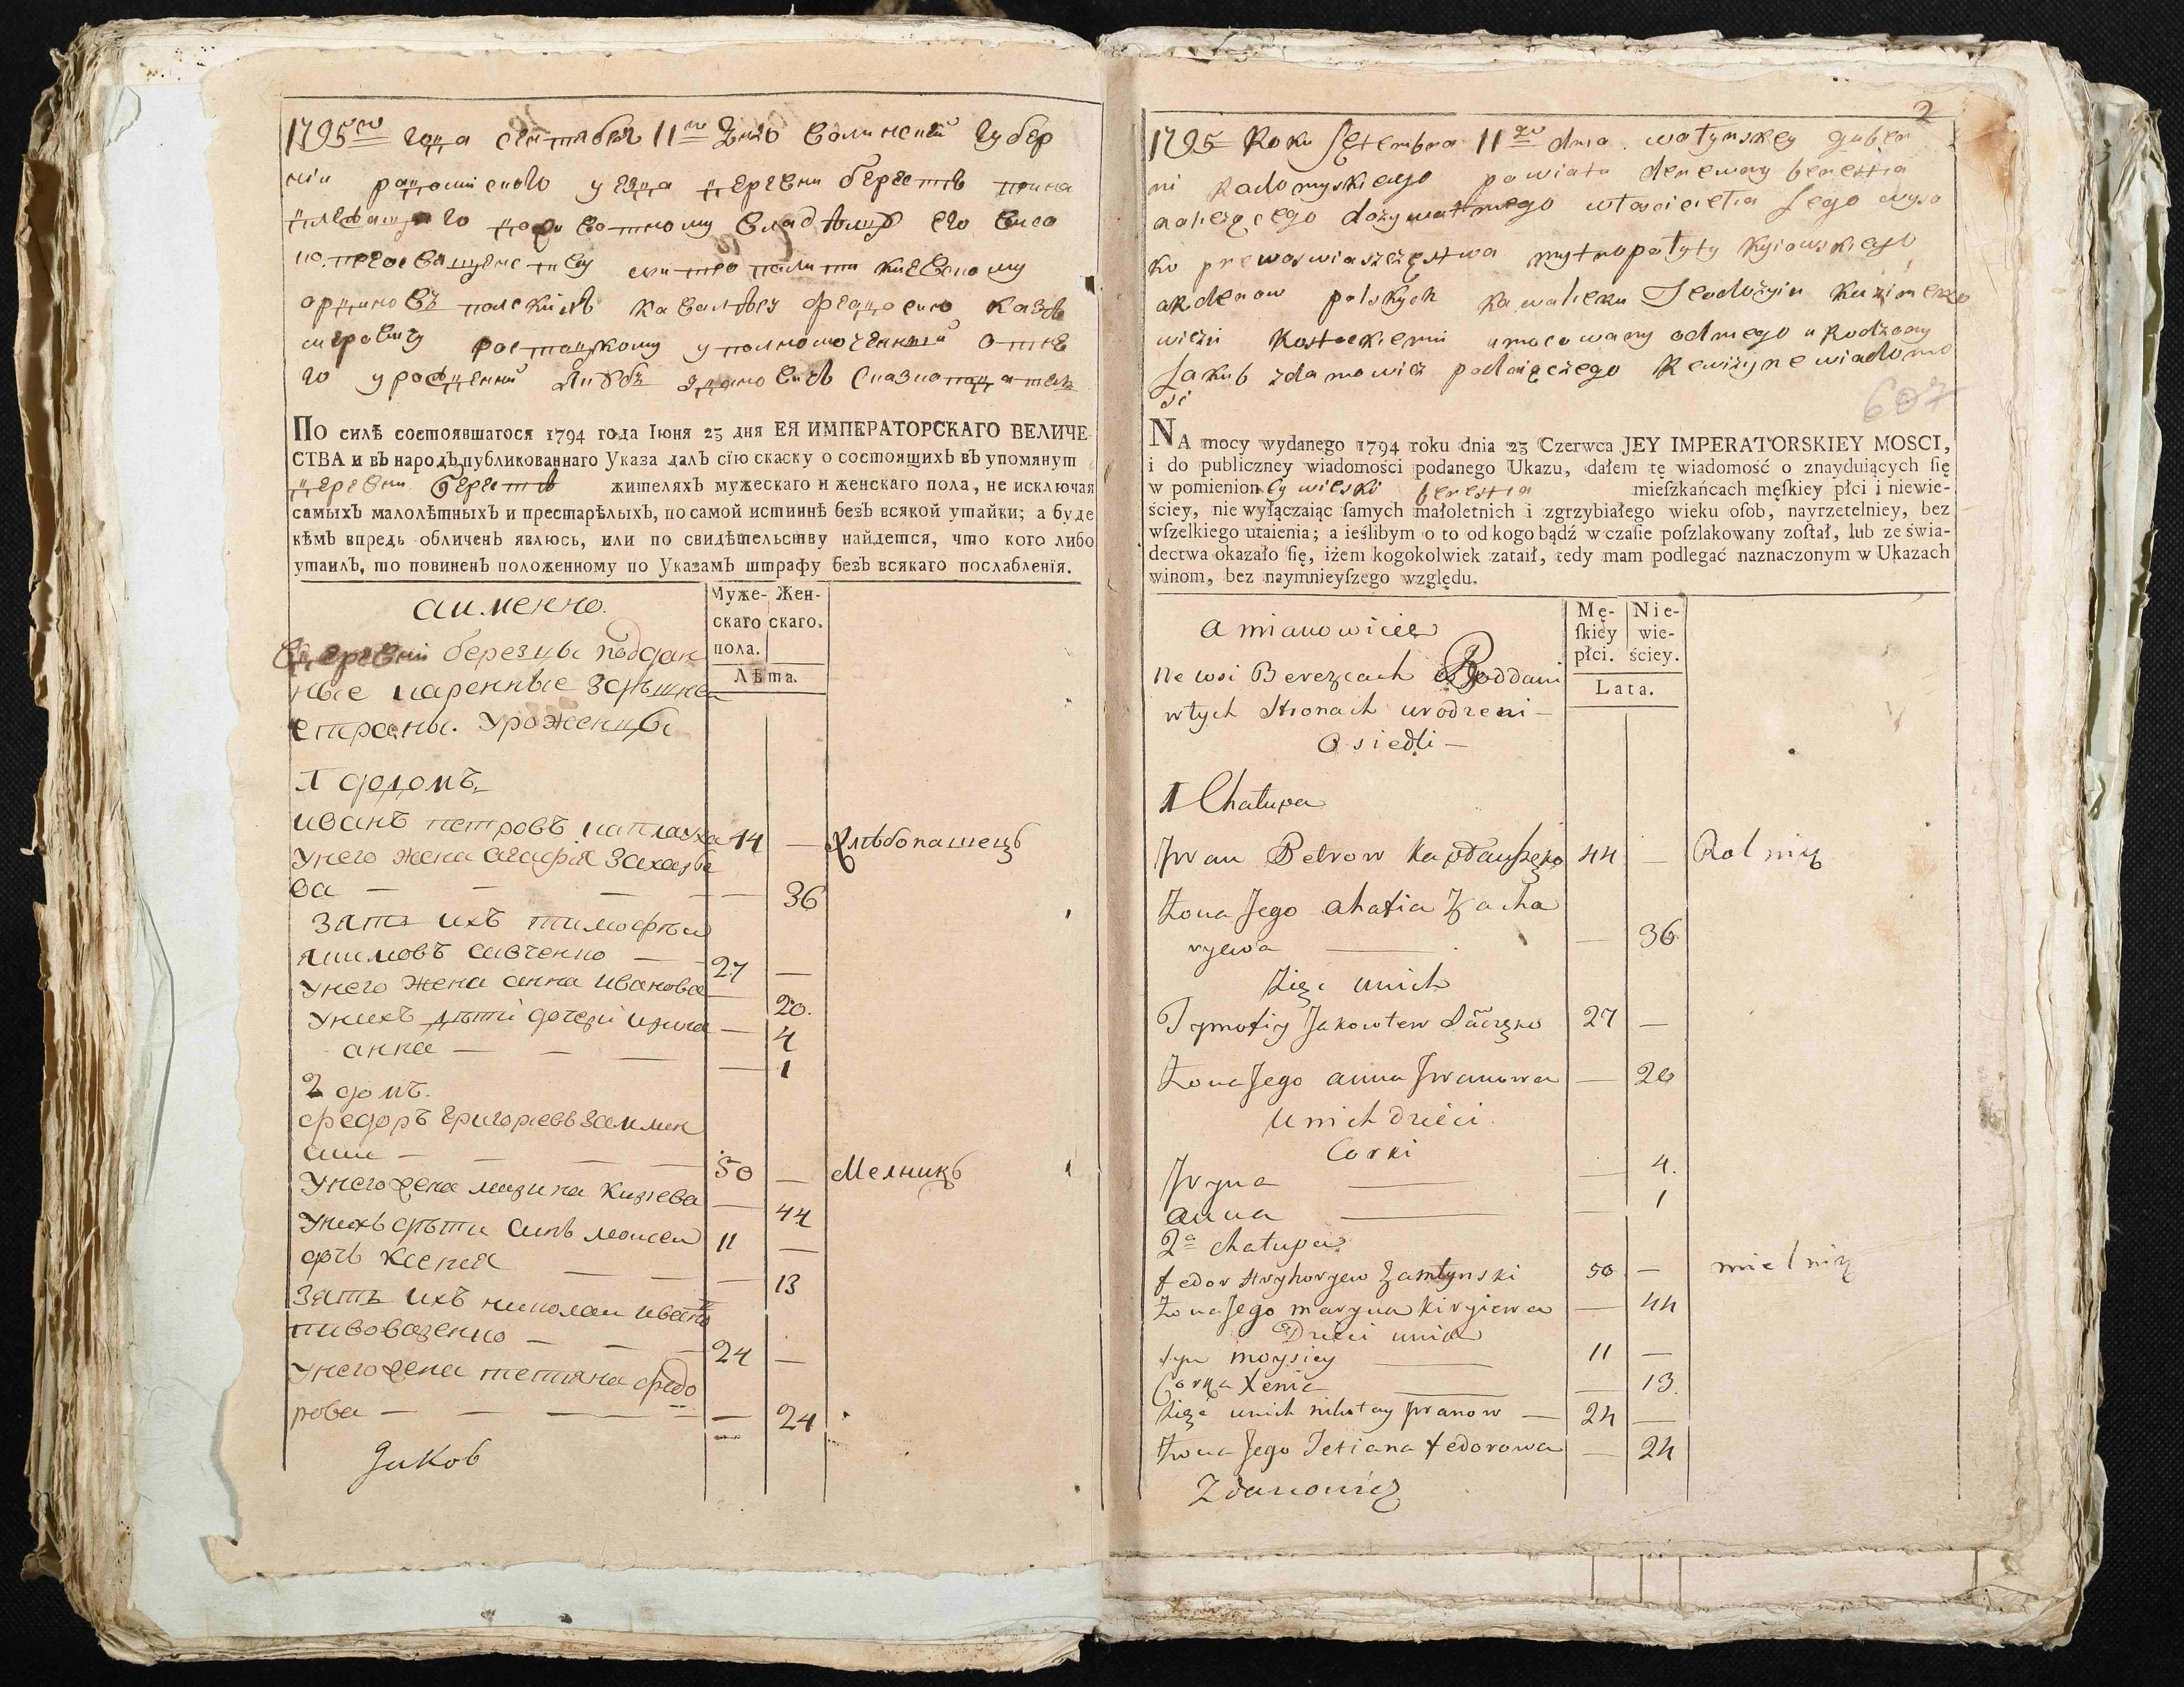 1795го года сентября 11го дня волинской губер
нии радомисского уезда деревни берестя прина
длежащаго владѣлцу его висо
митрополити киевскому
ординовъ полскихъ кавалѣру феодосию казѣ
мировичу ростоцкому уполномоченний отне
го урожденний Якубъ здановичъ
По силѣ состоявшагося 1794 года Іюня 23 дня ЕЯ ИМПЕРАТОРСКАГО ВЕЛИЧЕ-
СТВА и въ народъ публикованнаго Указа далъ сїю скаску о состоящихъ въ упомянут
деревни берестѣ жителяхъ мужескаго и женскаго пола, не исключая
самыхъ малолѣтныхъ и престарѣлыхъ, по самой истиннѣ безъ всякой утайки; а буде
кѣмъ впредь обличенъ явлюсь, или по свидѣтельству найдется, что кого либо
утаилъ, то повиненъ положенному по Указамъ штрафу безъ всякаго послабленїя.
аименно.
Муже- Жен-
скаго скаго.
пола.
Лѣта.
вдеревни березцы поддан
ные коренные здѣшней
страны. Уроженцы
1 домъ
иванъ петровъ каплаухо 44 — хлѣбопашецъ
Унего жена агафія Захарѣе
ва — — — — 36
зять ихъ тимофѣи
якимовъ савченко — 27 —
унего жена анна иванова — 20.
Унихъ дѣти дочери ирина — 4
анна — — — — 1
2 домъ.
федоръ григориевъ замлин
ски — — — 50 — Мелникъ
Унего жена марина кириева — 44
Унихъ дѣти синъ моисеи 11 —
дочь ксения — — — 13
Зять ихъ николаи ивановъ
пивоваренко — — — 24 —
Унего жена тетяна федо
рова — — — — 24
Jakob
2
1795 Roku Sętembra 11go dnia wołynskey guber
ni Radomyskiego powiatu derewny berestia
należącego dożywotnego własciciela Jego wyso
ko prewoswiaszczęstwa mytropołyty Kyiowskiego
ordenow polskych kawaleru Teodozyiu Kazimerzo
wiczu Rostockiemu umocowany odniego urodzony
Jakub zdanowicz podaiączego Rewizyine wiadomo
sci
607
NA mocy wydanego 1794 roku dnia 23 Czerwca JEY IMPERATORSKIEY MOSCI,
i do publiczney wiadomości podanego Ukazu, dałem tę wiadomość o znayduiących ſię
w pomienioney wieski berestia mieſzkańcach męſkiey płci i niewie-
ściey, nie wyłączaiąc ſamych małoletnich i zgrzybiałego wieku oſob, nayrzetelniey, bez
wſzelkiego utaienia; a ieślibym o to od kogo bądź w czaſie poſzlakowany zoſtał, lub ze świa-
dectwa okazało ſię, iżem kogokolwiek zataił, tedy mam podlegać naznaczonym w Ukazach
winom, bez naymnieyſzego względu.
a mianowicie
Mę- Nie-
ſkiey wie-
płci. ściey.
Lata.
we wsi Berezcach Poddani
wtych stronach urodzeni —
Osiedli —
1 Chałupa
Jwan Petrow Kapłauszęko 44 — Rolnik
Żona Jego ahafia Zacha
ryewa — — 36
Zięc unich
Tymofiy Jakowlew Sawczęko 27 —
Żona Jego anna Jwanowa — 20
Unich dzieci
Corki
Jryna — — 4.
anna — — 1
2a chałupa
fedor Hryhoryew Zamłynski 50 — mielnik
Żona Jego maryna kiryiewa — 44
Dzieci unich
syn moysiey — 11 —
Corka Xenia — — 13.
Zięc unich nikołay Jwanow — 24 —
Żona Jego Tetiana fedorowa — 24
Zdanowicz